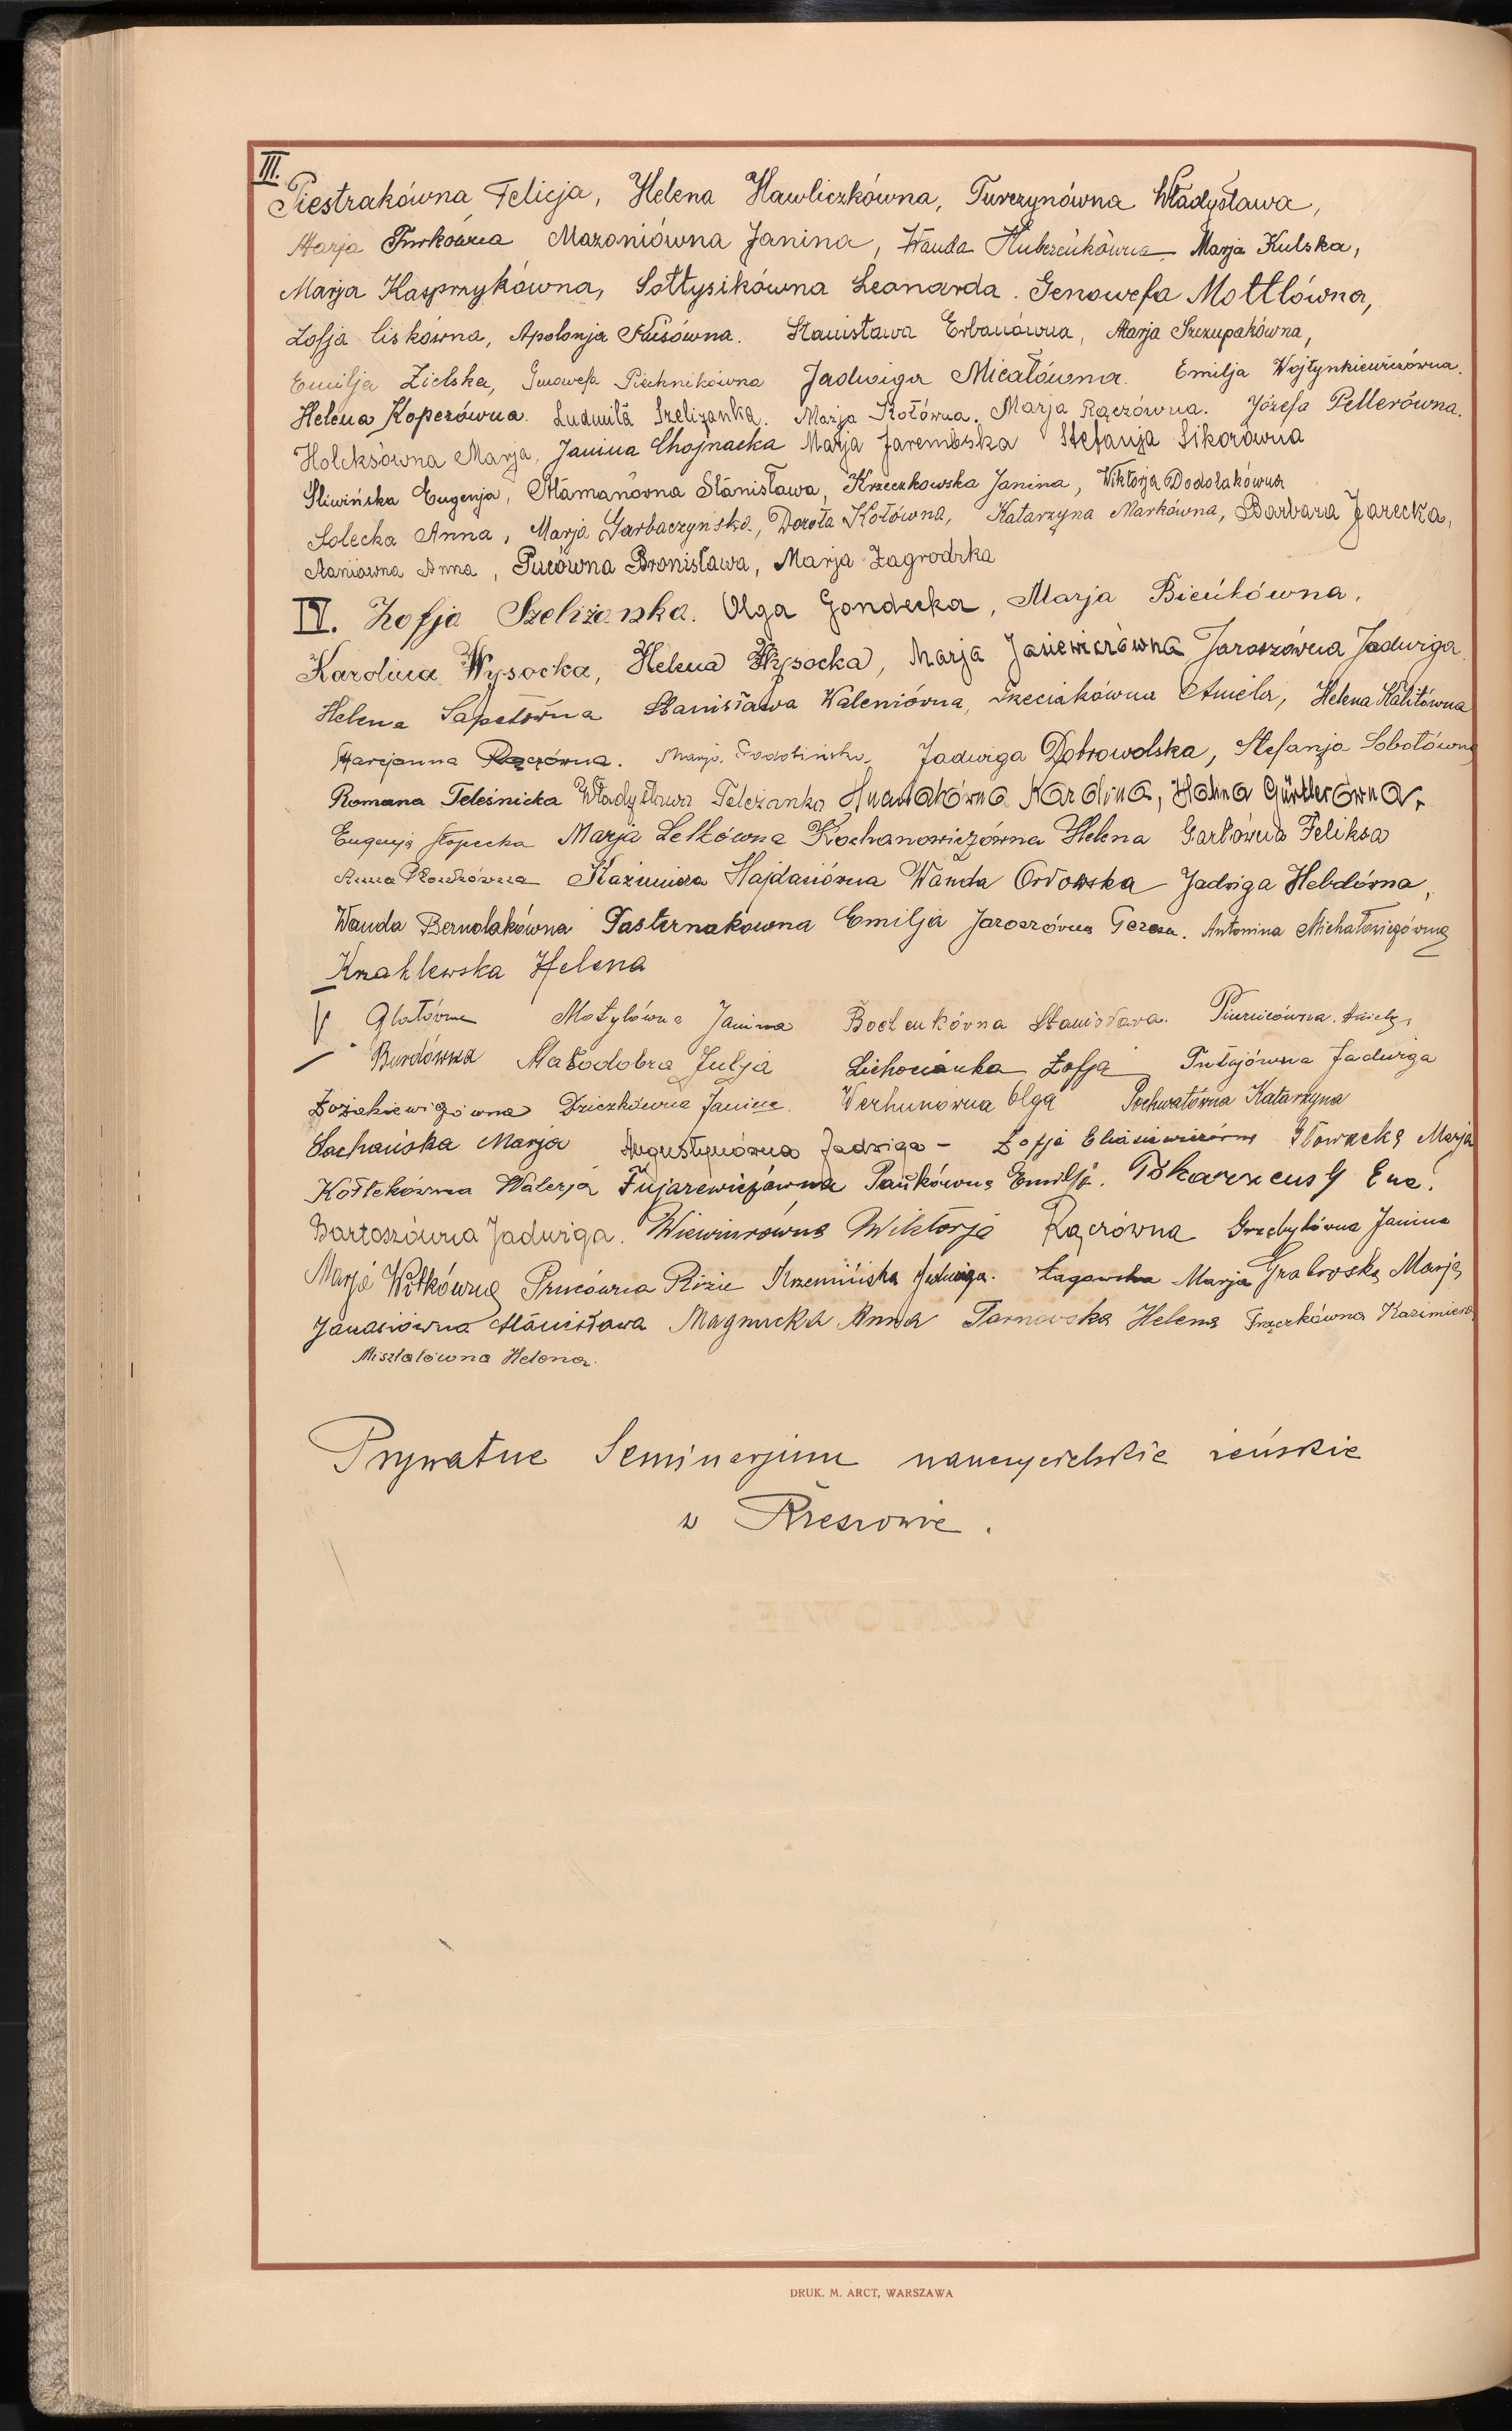 III.
Piestrakówna Felicja, Helena Hawliczkówna, Turczynówna Władysława,
Marja Turkówna Mazaniówna Janina, Wanda Marja Kulska,
Marja Kasprzykówna, Sołtysikówna Leonarda. Genowefa Mottlówna,
Zofja Liskówna, Apolonja Stanisława Erbanówna, Marja Szczupakówna,
Emilja Zielska, Genowefa Piechnikówna Jadwiga Micałówna. Emilja Wojtynkiewiczówna.
Helena Koperówna. Ludmiła Szeliżanka. Marja Kotówna. Marja Rączówna. Józefa Pellerówna.
Holeksówna Marja, Janina Chojnacka Marja Jarembska Stefanja Sikorówna
Śliwińska Eugenja, Atamanówna Stanisława, Krzeczkowska Janina, Wiktorja Dodolakówna
Solecka Anna, Marja Garbaczyńska, Dorota Kotówna, Katarzyna Markówna, Barbara Jarecka,
Anna, Pucówna Bronisława, Marja Zagrodzka
IV. Zofja Szeliżanka. Olga Gondecka, Marja Bieńkówna,
Karolina Wysocka, Helena Wysocka, Marja Jasiewiczówna Jaroszówna Jadwiga
Helena Sapetówna Stanisława Waleniówna, Trzeciakówna Aniela, Helena Kalitówna
Marjanna Rączówna. Marja Jadwiga Dobrowolska, Stefanja Sobotówna
Romana Teleśnicka Władysława Teleżanka Karolina, Halina Gürtlerówna.
Eugenja Słopecka Marja Letkówna Kochanowiczówna Helena Garłówna Feliksa
Anna Kazimiera Hajdasiówna Wanda Orłowska Jadwiga Hebdówna,
Wanda Bernolakówna Pasternakówna Emilja Jaroszówna Teresa. Antonina Michałowiczówna
Knahlewska Helena
V Glatówna Motylówna Janina Bochenkówna Stanisława. Aniela,
Burdówna Małodobra Julja Lichocianka Zofja Putajówna Jadwiga
Dziczkówna Janina. Werhunówna Olga Pochwatówna Katarzyna
Sochańska Marja Augustynówna Jadwiga – Zofja Eliasiewiczówna Głowacka Marja
Kottekówna Walerja Fujarewiczówna Pańkówna Emilja. Tokarzeusy Ewa.
Bartoszówna Jadwiga. Wiewiurówna Wiktorja Rączówna Grzebykówna Janina
Marja Wołkówna Prucówna Krzemińska Jadwiga. Łagowska Marja Grabowska Marja
Janasiówna Stanisława Magnucka Anna Tarnowska Helena Frączkówna Kazimiera
Misztalówna Helena.
Prywatne Seminarjum nauczycielskie żeńskie
w Rzeszowie.
DRUK. M. ARCT, WARSZAWA